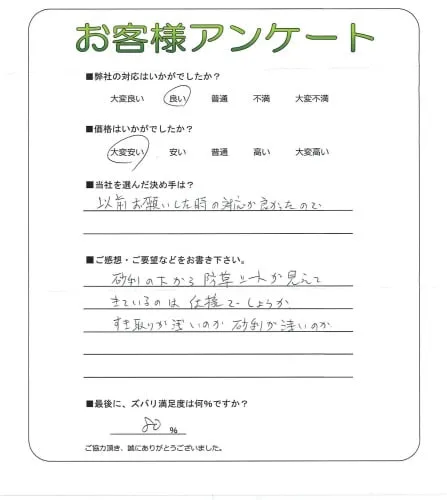 お客様アンケート
■弊社の対応はいかがでしたか?
大変良い 良い 普通 不満 大変不満
■価格はいかがでしたか?
大変安い 安い 普通 高い 大変高い
■当社を選んだ決め手は?
以前お願いした時の対応が良かったので
■ご感想・ご要望などをお書き下さい。
砂利の下から防草シートが見えて
きているのは仕様でしょうか
すき取りが浅いのか砂利が浅いのか
■最後に、ズバリ満足度は何%ですか?
80 %
ご協力頂き、誠にありがとうございました。